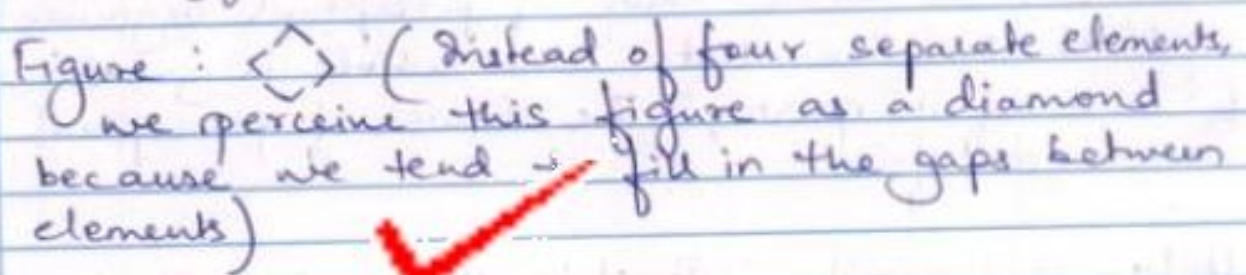 Figure : (Instead of four separate elements,
we perceive this figure as a diamond
because we tend fill in the gaps between
elements)